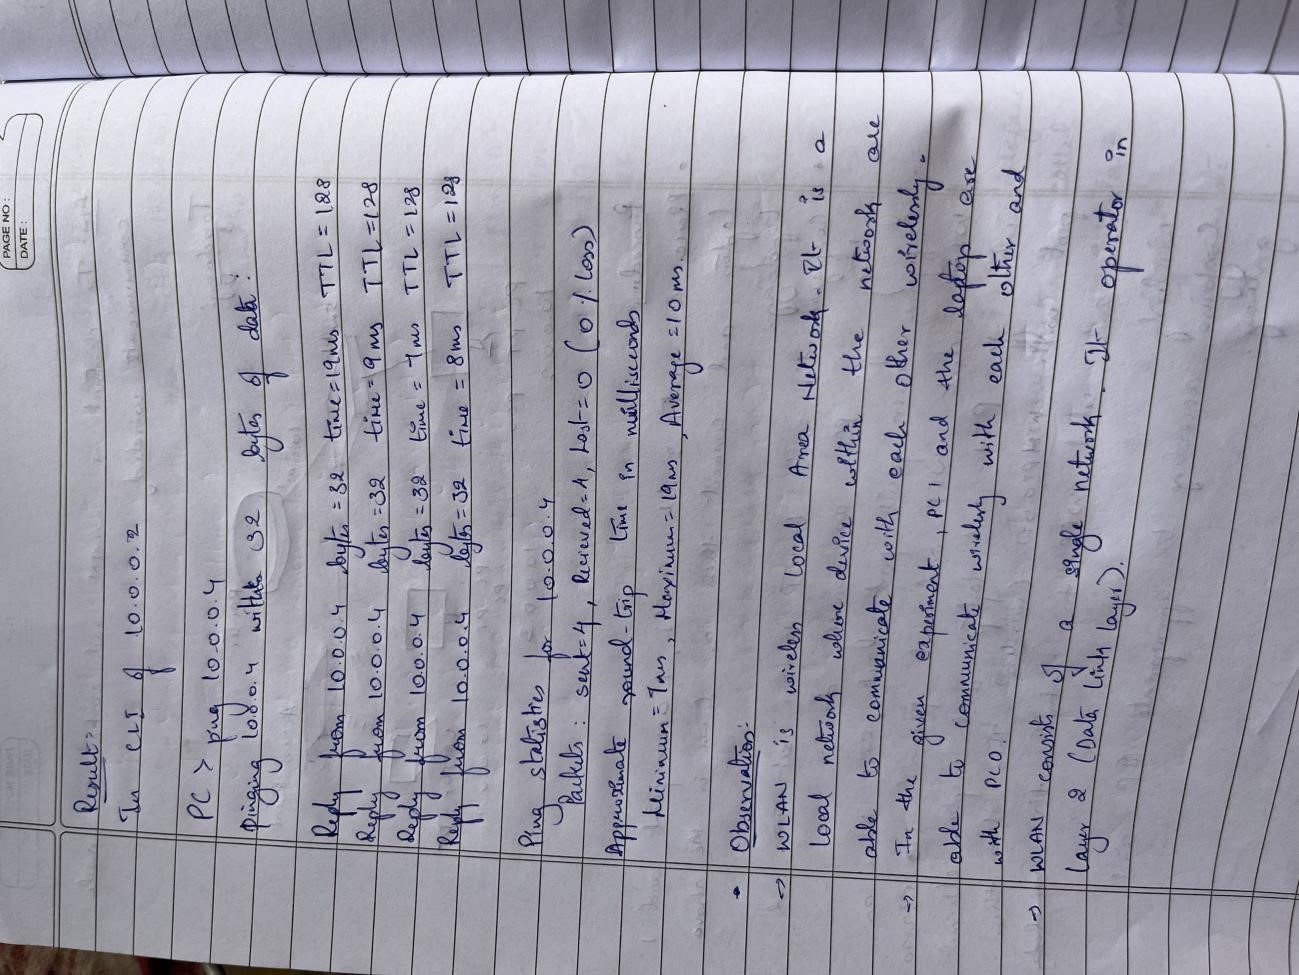 PAGE NO :
DATE :
Result:-
In CLI of 10.0.0.2
PC > ping 10.0.0.4
Pinging 10.0.0.4 with 32 bytes of data:
Reply from 10.0.0.4 bytes = 32 time = 19ms TTL = 128
Reply from 10.0.0.4 bytes = 32 time = 9ms TTL = 128
Reply from 10.0.0.4 bytes = 32 time = 7ms TTL = 128
Reply from 10.0.0.4 bytes = 32 time = 8ms TTL = 128
Ping statistics for 10.0.0.4
Packets : sent = 4, Recieved = 4, Lost = 0 (0% loss)
Approximate round-trip time in milliseconds
Minimum = 7ms, Maximum = 19ms, Average = 10ms.
• Observation:-
→ WLAN is wireless Local Area Network. It is a
local network where device within the network are
able to communicate with each other wirelessly.
→ In the given experiment, PC1 and the laptop are
able to communicate wirelessly with each other and
with PC0.
→ WLAN consists of a single network. It operator in
layer 2 (Data link layer).